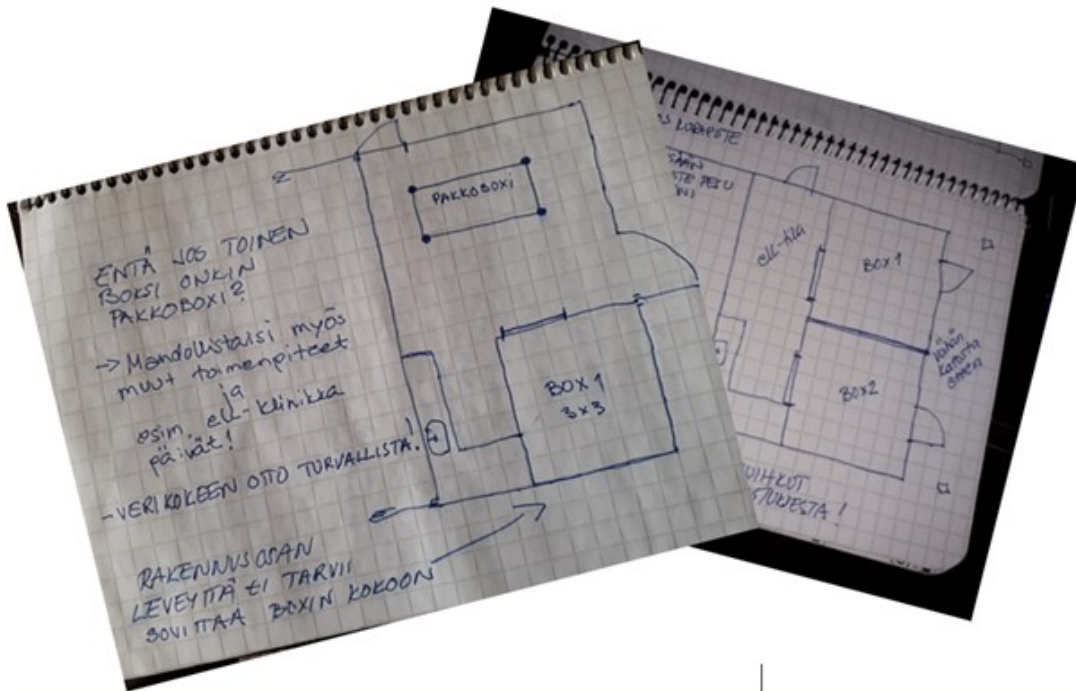 ENTÄ JOS TOINEN
BOKSI ONKIN
PAKKOBOXI?
-> Mahdollistaisi myös
muut toimenpiteet
ja
esim. ell-klinikka
päivät!
- VERIKOKEEN OTTO TURVALLISTA!
RAKENNUSOSAN
LEVEYTTÄ EI TARVII
SOVITTAA BOXIN KOKOON
PAKKOBOXI
BOX 1
3x3
ell-tila
BOX 1
BOX2
vähän
katosta